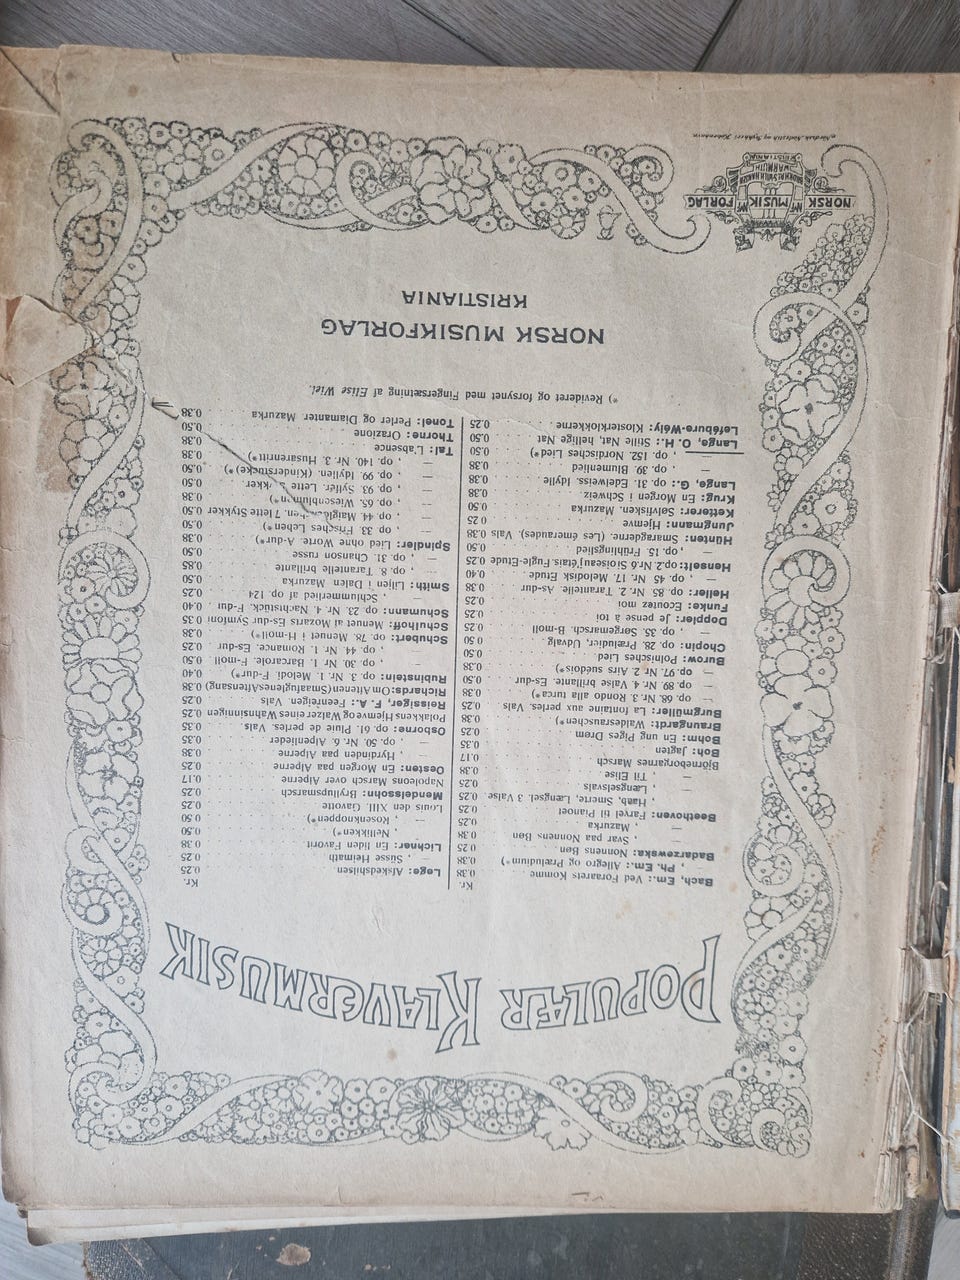 POPULÆR KLAVERMUSIK
Kr.
Bach, Em.: Ved Foraarets Komme 0.38
— , Ph. Em.: Allegro og Præludium*) 0.38
Badarzewska: Nonnens Bøn 0.25
— Svar paa Nonnens Bøn 0.38
— Mazurka 0.25
Beethoven: Farvel til Pianoet 0.25
— , Haab, Smerte, Længsel. 3 Valse 0.25
— Længselsvals 0.25
— , Til Elise 0.38
Björneborgarnes Marsch 0.17
Boh: Jagten 0.35
Bohm: En ung Piges Drøm 0.25
Braungardt: Waldesrauschen*) 0.38
Burgmüller: La fontaine aux perles. Vals 0.25
— op. 68 Nr. 3. Rondo alla turca*) 0.38
— op. 89 Nr. 4. Valse brillante. Es-dur 0.50
— op. 97 Nr. 2 Airs suédois*) 0.38
Burow: Polnisches Lied 0.50
Chopin: op. 28. Præludier, Udvalg 0.50
— , op. 35. Sørgemarsch. B-moll 0.25
Doppler: Je pense à toi 0.25
Funke: Ecoutez moi 0.25
Heller: op. 85 Nr. 2. Tarantelle. As-dur 0.38
— , op. 45 Nr. 17. Melodisk Etude 0.40
Henselt: op. 2 Nr. 6. Si oiseau j'étais. Fugle-Etude 0.25
— , op. 15. Frühlingslied 0.50
Hünten: Smaragderne. (Les émeraudes). Vals 0.38
Jungmann: Hjemve 0.25
Ketterer: Sølvfisken. Mazurka 0.50
Krug: En Morgen i Schweiz 0.38
Lange, G.: op. 31. Edelweiss. Idylle 0.38
— , op. 39. Blumenlied 0.38
— , op. 152. Nordisches Lied*) 0.50
Lange, O. H.: Stille Nat, hellige Nat 0.50
Lefébure-Wély: Klosterklokkerne 0.25
Kr.
Lege: Afskedshilsen 0.25
— , Süsses Heimath 0.25
Lichner: En liden Favorit 0.38
— , Nelliken*) 0.50
— , Rosenknoppen*) 0.50
Louis den XIII. Gavotte 0.25
Mendelssohn: Bryllupsmarsch 0.25
Napoleons Marsch over Alperne 0.17
Oesten: En Morgen paa Alperne 0.25
— , Hyrdinden paa Alperne 0.38
— , op. 50. Nr. 6. Alpenlieder 0.35
Osborne: op. 61. Pluie de perles. Vals 0.35
Polakkens Hjemve og Walzeines Wahnsinnigen 0.25
Reissiger, F. A.: Feenreigen. Vals 0.25
Richards: Om Aftenen (Smaafuglenes Aftensang) 0.38
Rubinstein: op. 3 Nr. 1. Melodi. F-dur*) 0.40
— , op. 30 Nr. 1. Barcarole. F-moll 0.50
— , op. 44 Nr. 1. Romance. Es-dur 0.25
Schubert: op. 78. Menuet i H-moll*) 0.38
Schulhoff: Menuet af Mozarts Es-dur Symfoni 0.35
Schumann: op. 23. Nr. 4. Nachtstück. F-dur 0.40
— , Schlummerlied af op. 124 0.25
Smith: Liljen i Dalen. Mazurka 0.50
— , op. 8. Tarantelle brillante 0.85
— , op. 31. Chanson russe 0.50
Spindler: Lied ohne Worte. A-dur*) 0.38
— , op. 33. Frisches Leben*) 0.50
— , op. 44. 7 lette Stykker 0.50
— , op. 65. Wiesenblumen*) 0.38
— , op. 93. Sylfer. Lette 0.50
— , op. 99. Idyllen. (Kinderstücke)*) 0.50
— , op. 140. Nr. 3. Husarenritt*) 0.38
Tal: L'absence 0.38
Thorne: Orazione 0.50
Tonel: Perler og Diamanter. Mazurka 0.38
*) Revideret med forsynet og Fingersætning af Elise Wiel.
NORSK MUSIKFORLAG
KRISTIANIA
NORSK MUSIK FORLAG
BRØDR. HALS WILH. HANSEN
WARMUTH
KRISTIANIA